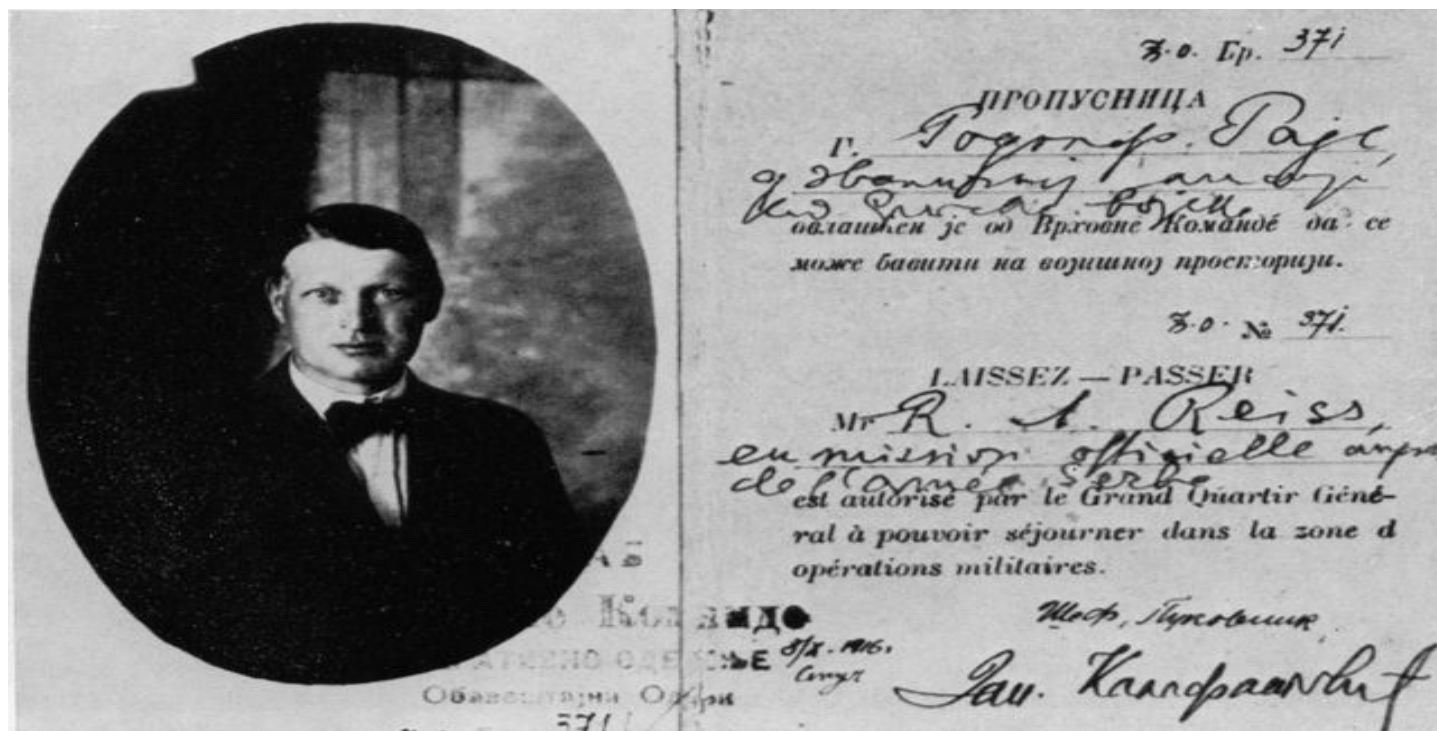 З.О. Бр. 371
ПРОПУСНИЦА
Г. Родолф. Рајс,
у званичној
код Српске војске
овлашћен је од Врховне Командé да се
може бавити на војишној просторији.
З.О. № 371.
LAISSEZ — PASSER
Mr R. A. Reiss,
en mission officielle
de l'armée Serbe
est autorisé par le Grand Quartir Géné-
ral à pouvoir séjourner dans la zone d
opérations militaires.
Шеф, Пуковник
Дан. Калафатовић
НО ОДЕ ЊЕ
Обавештајни
371
1916.